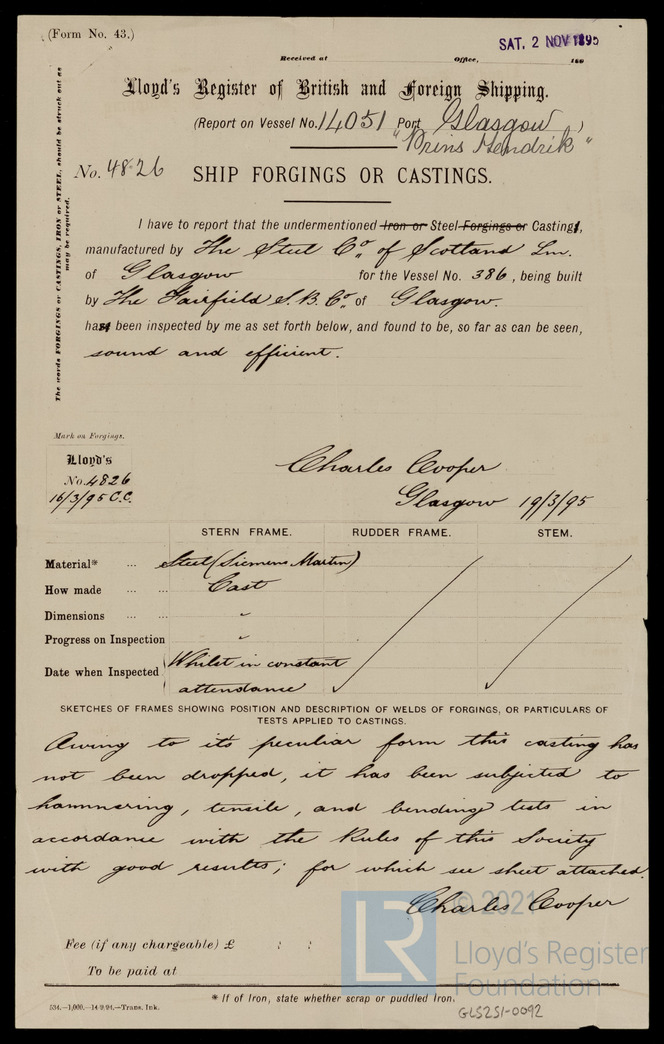 (Form No. 43.)
SAT. 2 NOV 1895
Received at Office, 189
Lloyd's Register of British and Foreign Shipping.
(Report on Vessel No. 14051 Port Glasgow)
"Prins Hendrik"
No. 4826 SHIP FORGINGS OR CASTINGS.
The words FORGINGS or CASTINGS, IRON or STEEL, should be struck out as
may be required.
I have to report that the undermentioned Iron or Steel Forgings or Castings,
manufactured by The Steel Co. of Scotland Lm.
of Glasgow for the Vessel No. 386, being built
by The Fairfield S.B. Co. of Glasgow.
has been inspected by me as set forth below, and found to be, so far as can be seen,
sound and efficient.
Mark on Forgings.
Lloyd's
No. 4826
16/3/95 C.C.
Charles Cooper
Glasgow 19/3/95
STERN FRAME. RUDDER FRAME. STEM.
Material* ... Steel (Siemens Martin)
How made ... ... Cast
Dimensions ... ... "
Progress on Inspection "
Date when Inspected Whilst in constant
attendance
SKETCHES OF FRAMES SHOWING POSITION AND DESCRIPTION OF WELDS OF FORGINGS, OR PARTICULARS OF
TESTS APPLIED TO CASTINGS.
Owing to it's peculiar form this casting has
not been dropped, it has been subjected to
hammering, tensile, and bending tests in
accordance with the Rules of this Society
with good results; for which see sheet attached.
Charles Cooper
Fee (if any chargeable) £ : :
To be paid at
* If of Iron, state whether scrap or puddled Iron.
534.—1,000.—14 9.94.—Trans. Ink.
LR
© 2021
Lloyd's Register
Foundation
GLS2S1-0092